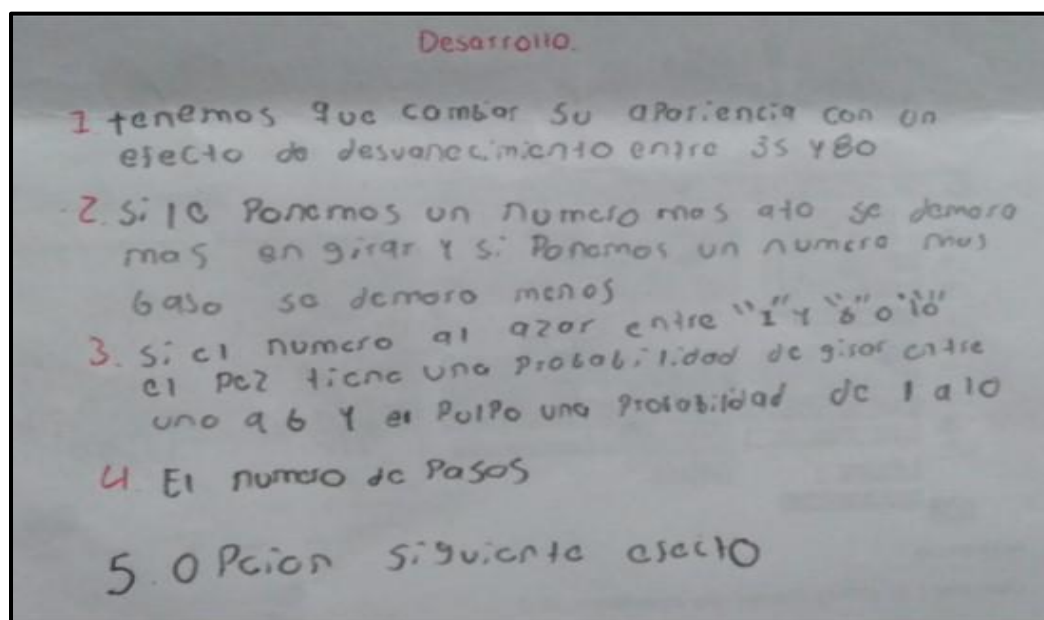 Desarrollo.
1 tenemos que combiar su aporiencia con un
efecto de desvanecimiento entre 35 y 80
2. Si le Ponemos un numero mas ato se demora
mas en girar y si Ponemos un numero mas
baso se demoro menos
3. Si el numero al azor entre "1" y "6" o "10"
el Pez tiene una Probabilidad de giror entre
uno a 6 y el PulPo una Probabilidad de 1 a 10
4. El numero de Pasos
5. OPcion siguiente efecto